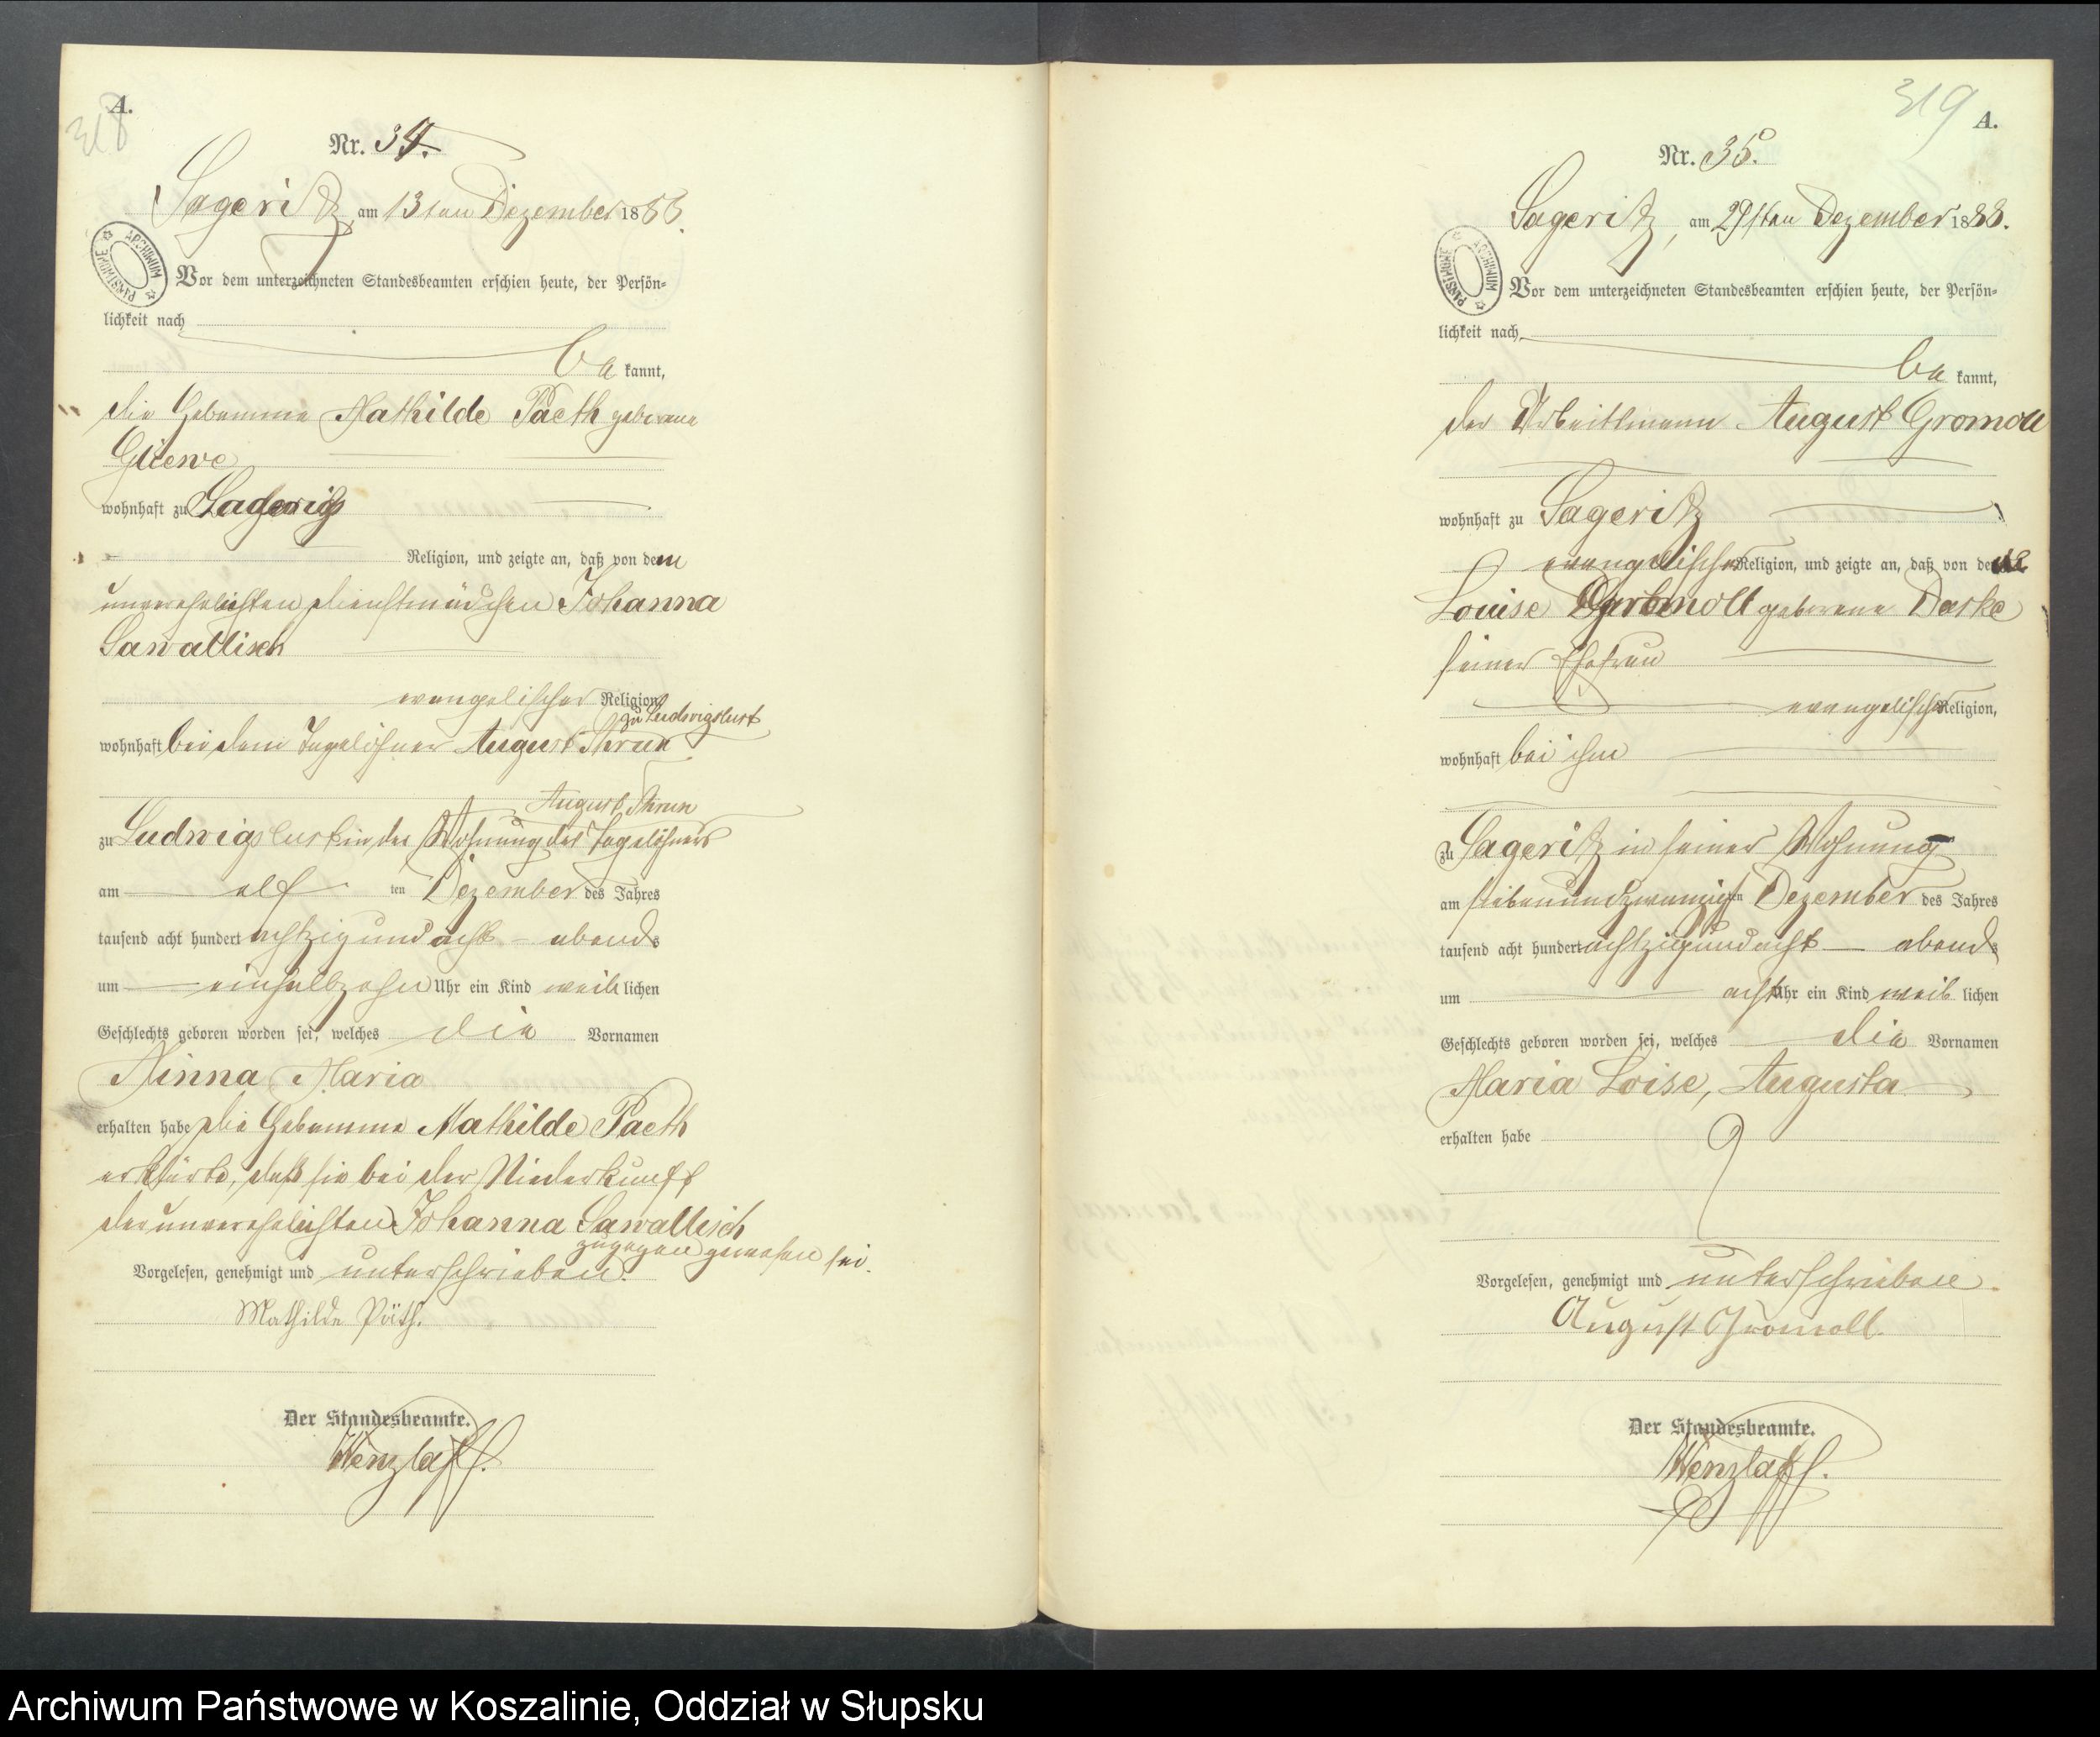 A.
318
Nr. 34.
Sageritz, am 13ten Dezember 1888.
Vor dem unterzeichneten Standesbeamten erschien heute, der Persön-
lichkeit nach
bekannt,
die Hebamme Mathilde Paeth geborene
Gliewe
wohnhaft zu
Religion, und zeigte an, daß von dem
unverehelichten Dienstmädchen Johanna
Sawallisch
evangelischer Religion,
zu Ludwigslust
wohnhaft bei dem Tagelöhner August Thrun
August Thrun
zu Ludwigslust in der Wohnung des Tagelöhners
am elf ten Dezember des Jahres
tausend acht hundert achtzig und acht abends
um einhalbzehn Uhr ein Kind weiblichen
Geschlechts geboren worden sei, welches die Vornamen
Minna Maria
erhalten habe die Hebamme Mathilde Paeth
erklärte, daß sie bei der Niederkunft
der unverehelichten Johanna Sawallisch
zugegen gewesen sei.
Vorgelesen, genehmigt und unterschrieben.
Mathilde Päth.
Der Standesbeamte.
Wenzlaff.
319
A.
Nr. 35.
Sageritz, am 29sten Dezember 1888.
Vor dem unterzeichneten Standesbeamten erschien heute, der Persön-
lichkeit nach
bekannt,
der Arbeitsmann August Gromoll
wohnhaft zu Sageritz
evangelischer Religion, und zeigte an, daß von der
Louise Gromoll geborene Darke
seiner Ehefrau
evangelischer Religion,
wohnhaft bei ihm
zu Sageritz in seiner Wohnung
am siebenundzwanzigsten Dezember des Jahres
tausend acht hundert achtzig und acht abends
um acht Uhr ein Kind weiblichen
Geschlechts geboren worden sei, welches die Vornamen
Maria Loise, Augusta
erhalten habe
Vorgelesen, genehmigt und unterschrieben.
August Gromoll.
Der Standesbeamte.
Wenzlaff.
ARCHIWUM PAŃSTWOWE
ARCHIWUM PAŃSTWOWE
Archiwum Państwowe w Koszalinie, Oddział w Słupsku